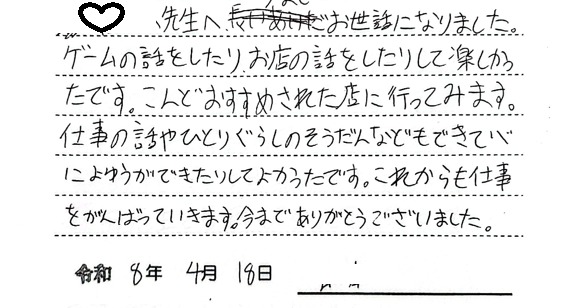 先生へ お世話になりました。
ゲームの話をしたり、お店の話をしたりして楽しかっ
たです。こんどおすすめされた店に行ってみます。
仕事の話やひとりぐらしのそうだんなどもできて
によゆうができたりしてよかったです。これからも仕事
をがんばっていきます。今までありがとうございました。
令和 8年 4月 18日